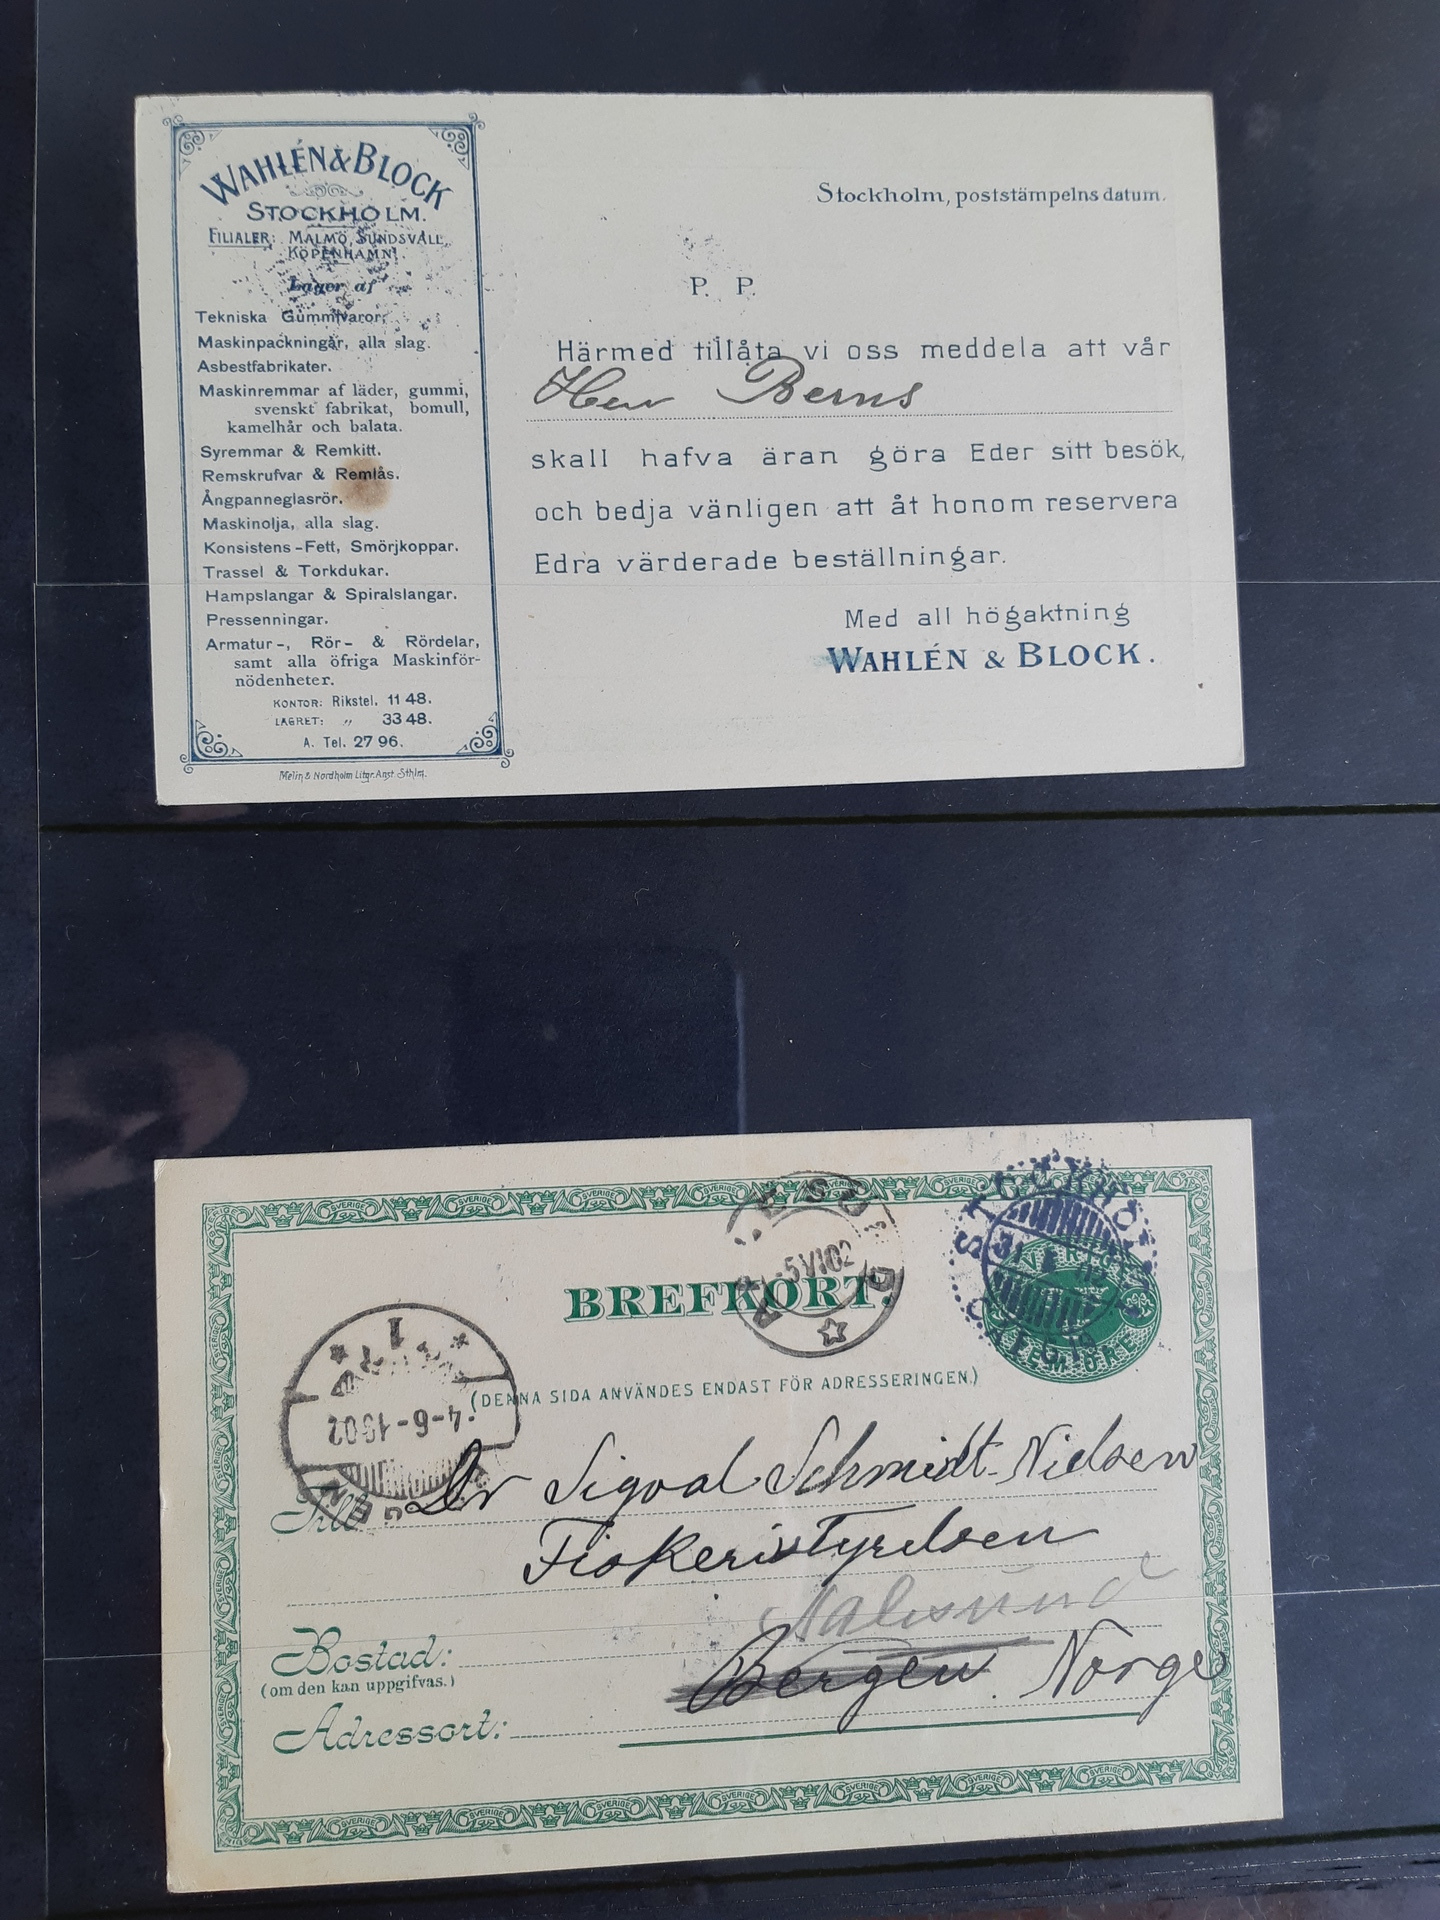 WAHLÉN & BLOCK
STOCKHOLM.
FILIALER: MALMÖ, SUNDSVALL,
KÖPENHAMN.
Lager af
Tekniska Gummivaror,
Maskinpackningar, alla slag.
Asbestfabrikater.
Maskinremmar af läder, gummi,
svenskt fabrikat, bomull,
kamelhår och balata.
Syremmar & Remkitt.
Remskrufvar & Remlås.
Ångpanneglasrör.
Maskinolja, alla slag.
Konsistens-Fett, Smörjkoppar.
Trassel & Torkdukar.
Hampslangar & Spiralslangar.
Pressenningar.
Armatur-, Rör- & Rördelar,
samt alla öfriga Maskinför-
nödenheter.
KONTOR: Rikstel. 11 48.
LAGRET: " 33 48.
A. Tel. 27 96.
Melin & Nordholm Litgr. Anst. Sthlm.
Stockholm, poststämpelns datum.
P. P.
Härmed tillåta vi oss meddela att vår
Herr Berns
skall hafva äran göra Eder sitt besök,
och bedja vänligen att åt honom reservera
Edra värderade beställningar.
Med all högaktning
WAHLÉN & BLOCK.
BREFKORT.
(DENNA SIDA ANVÄNDES ENDAST FÖR ADRESSERINGEN.)
AALESUND
-5 VI 02
STOCKHOLM
31
FEM ÖRE
1
-4-6-1902
Till Dr Sigval Schmidt-Nielsen
Fiskeristyrelsen
Aalesund
Bostad:
(om den kan uppgifvas.)
Bergen. Norge
Adressort:
SVERIGE